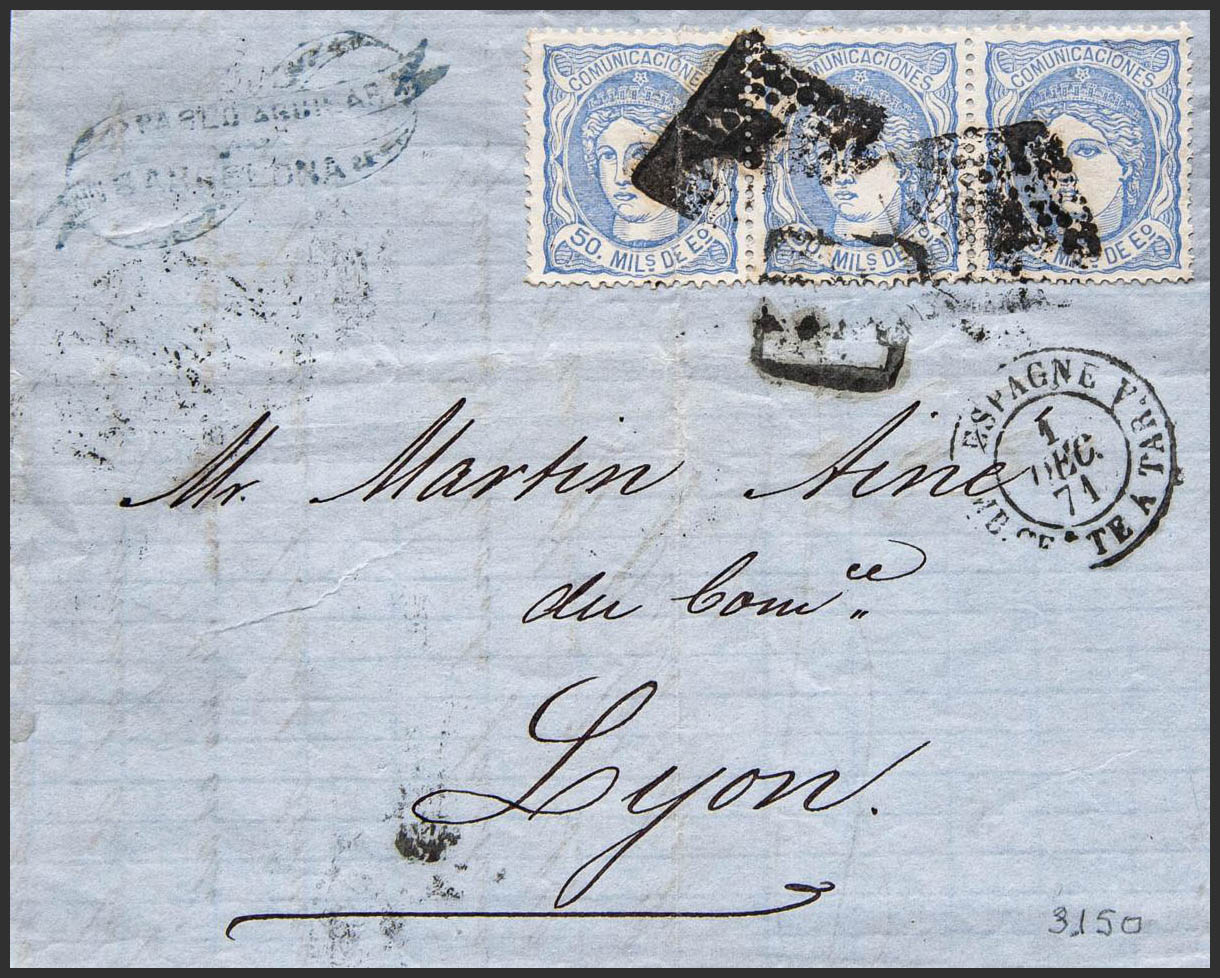 PABLO AGUILAR
BARCELONA
COMUNICACIONES
50. MILS DE EO
COMUNICACIONES
50. MILS DE EO
COMUNICACIONES
MILS DE EO
ESPAGNE
1
DEC.
71
TE A TAR
Mr. Martin Ainé
du Comce
Lyon.
3150